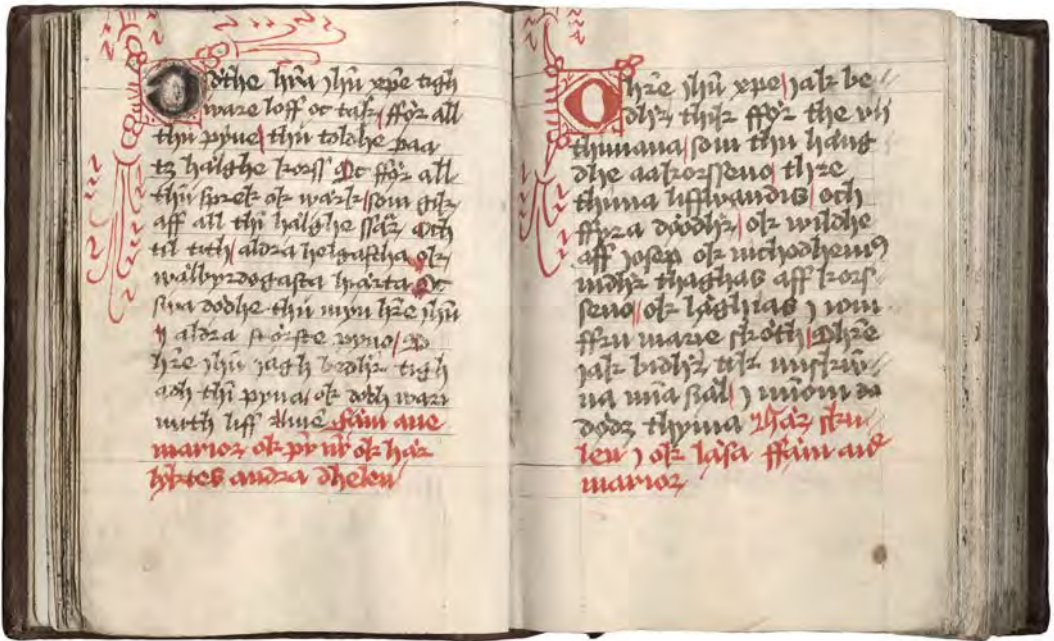 O dothe hr̄a ihū xp̄e tigh
ware loff oc tak, ffør all
thin pyne, thu toldhe paa
tz hälghe korss Oc ffør all
thin sprek ok wärk, som gik
aff all thī hälghe ssår, Och
til tith, aldra helgastha ok
wälbyrdogasta hiärta Oc
swa dodhe thu myn hr̄e ihū
ī aldra største pyno, O
hr̄e ihū iagh bedhr̄ tigh
adh thī pyna, ok dødh wari
mith liff Amē fäm aue
marior, ok pr̄ nr̄ ok här
lyktes andra dhelen
O hr̄e ihū xp̄e, iak be
dhr̄, thik ffør the vij
thimana, som thu häng
dhe aa korsseno, thre
thima liffwandis, och
ffyra dødhr̄, ok wildhe
aff iosep ok nichodhemꝰ
nidhr̄ thaghas aff kors
seno, ok läghias j iom
ffru marie skøth, O hr̄e
iak bidhr̄, tik miskū
na mīa siäl, j mīom
dødz thyma Thär sku
len j ok läsa ffäm aue
marior